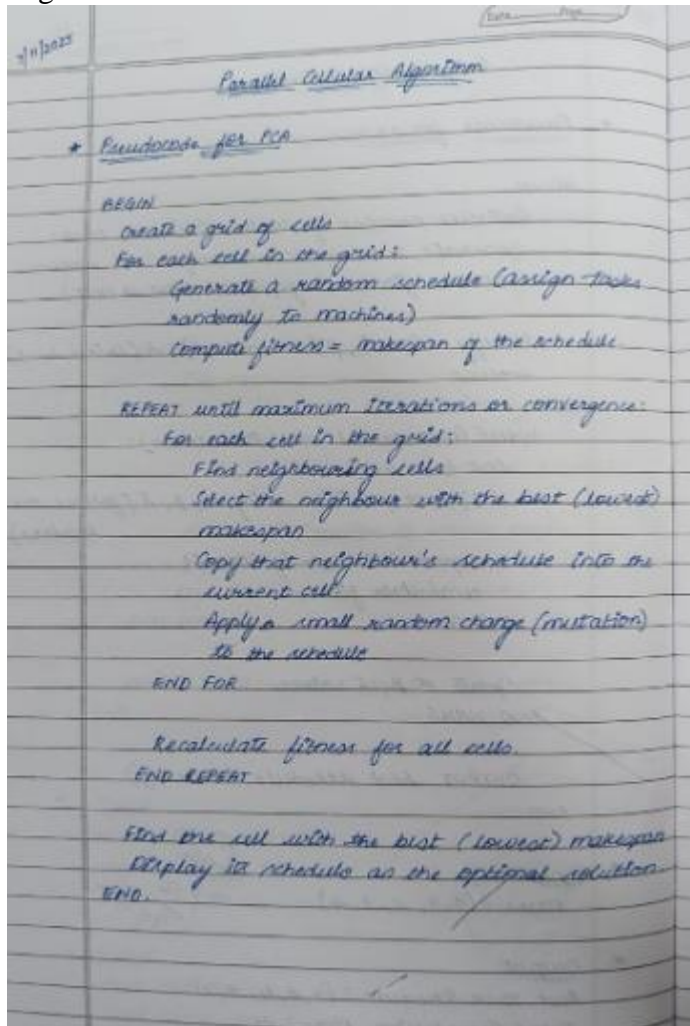 Date Page
7/11/2025
Parallel Cellular Algorithm
* Pseudocode for PCA
BEGIN
Create a grid of cells
For each cell in the grid:
Generate a random schedule (assign tasks
randomly to machines)
Compute fitness = makespan of the schedule
REPEAT until maximum iterations or convergence:
For each cell in the grid:
Find neighbouring cells
Select the neighbour with the best (lowest)
makespan
Copy that neighbour's schedule into the
current cell
Apply a small random change (mutation)
to the schedule
END FOR
Recalculate fitness for all cells.
END REPEAT
Find the cell with the best (lowest) makespan
Display its schedule as the optimal solution
END.